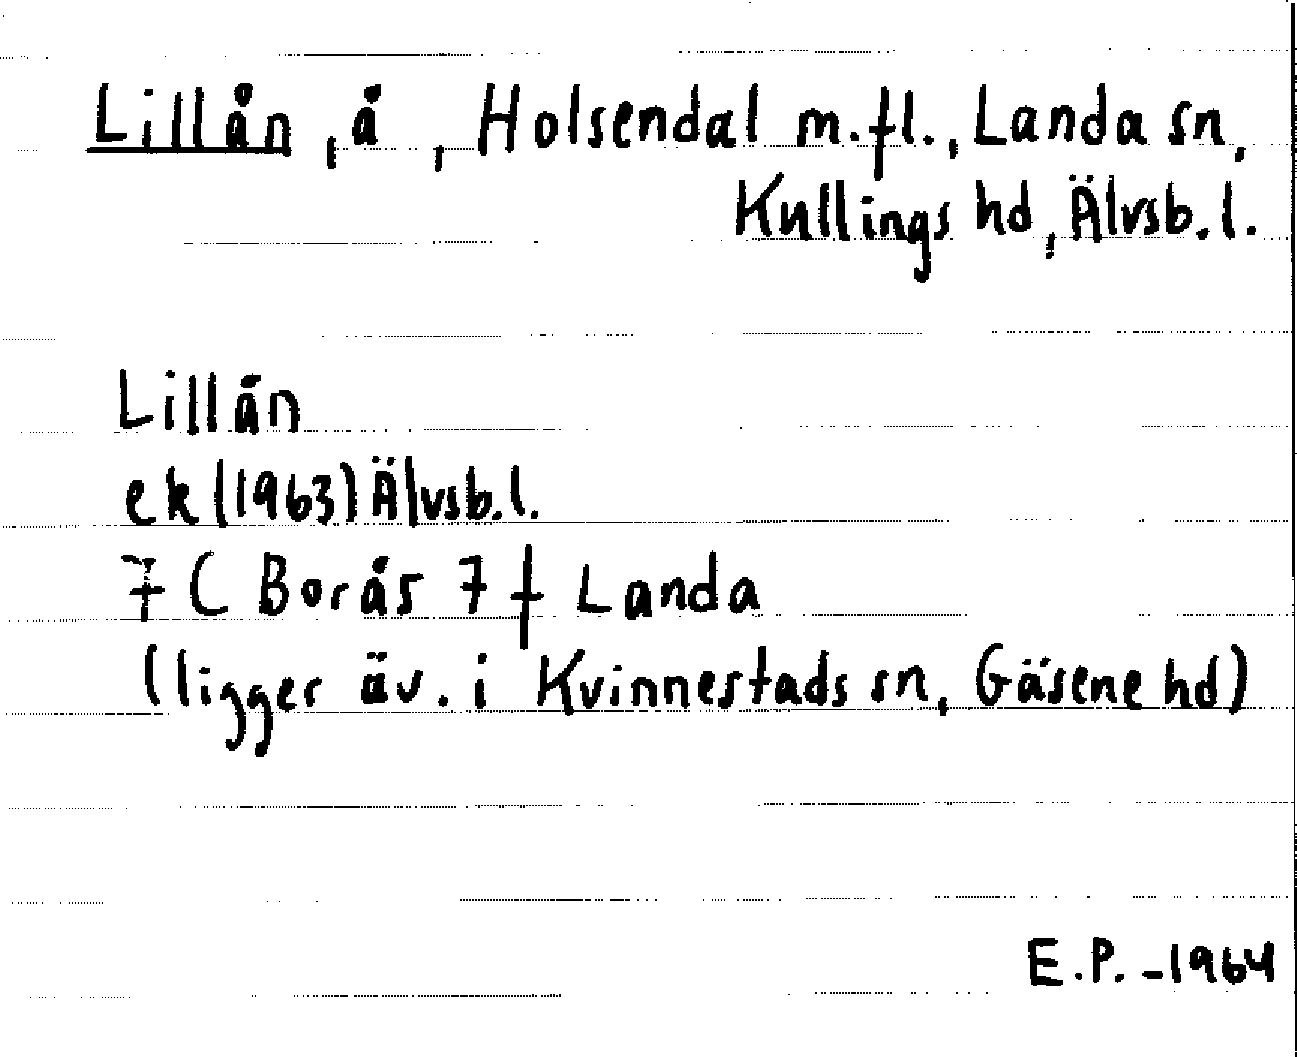 Lillån, å, Holsendal m.fl., Landa sn,
Kullings hd, Älvsb. l.
Lillån
ek (1963) Älvsb. l.
7 C Borås 7 f Landa
(ligger äv. i Kvinnestads sn, Gäsene hd)
E.P. -1964